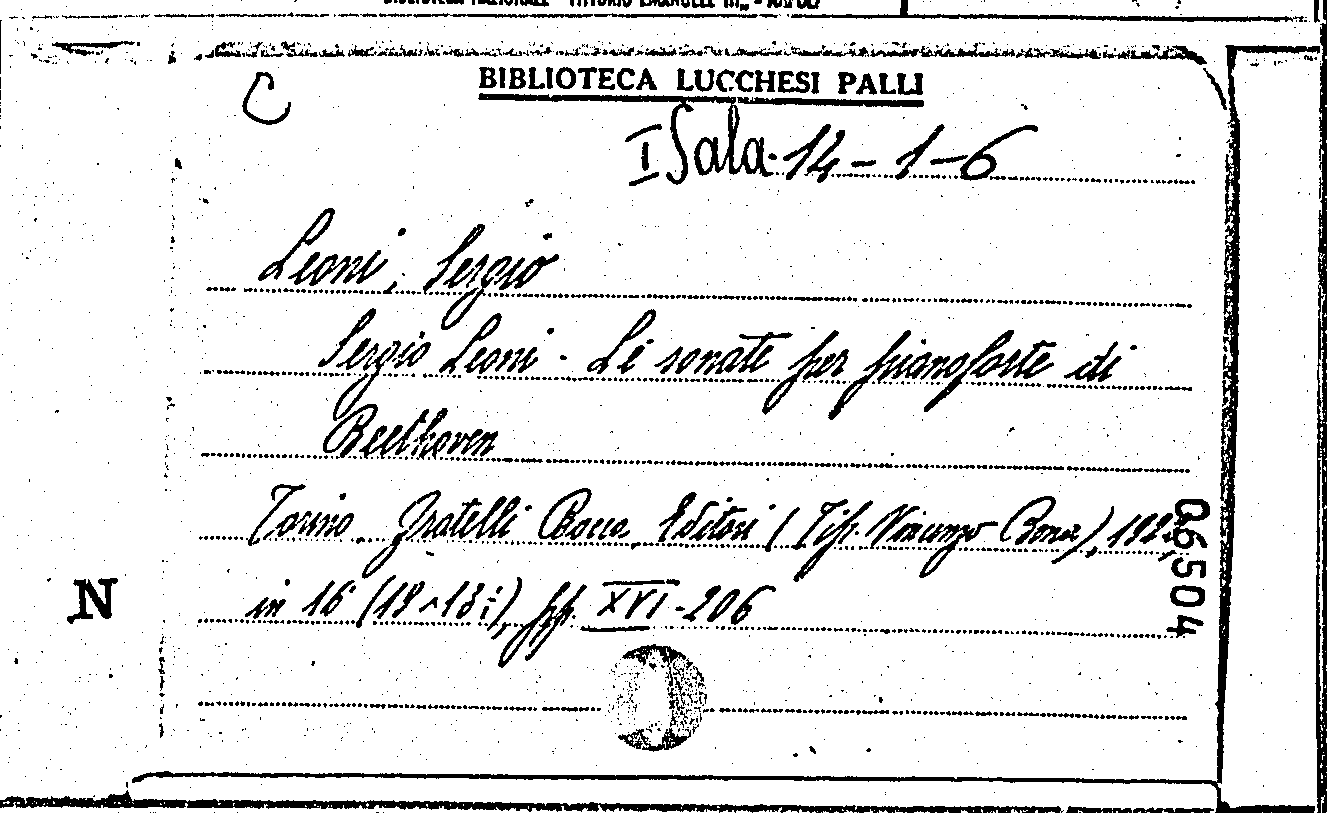 BIBLIOTECA NAZIONALE "VITTORIO EMANUELE III" - NAPOLI
C
BIBLIOTECA LUCCHESI PALLI
I Sala 14-1-6
Leoni, Sergio
Sergio Leoni - Le sonate per pianoforte di
Beethoven
Torino, Fratelli Bocca, Editori (Tip. Vincenzo Bona),
in 16 (19×13), pp. XVI-206
N
06504